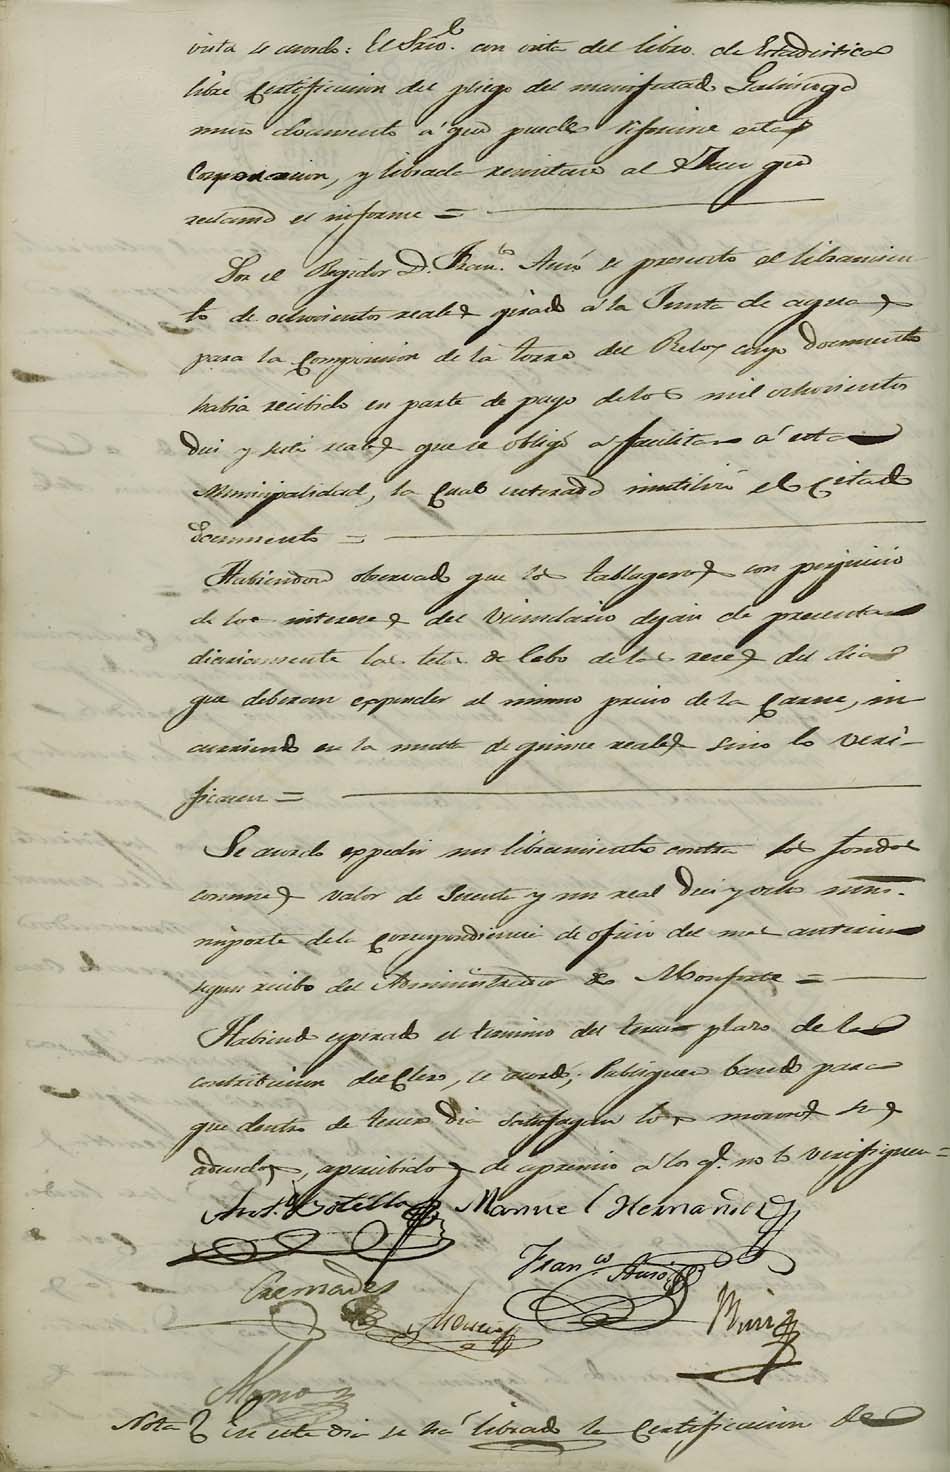 vista se acordo: El Srio. con vista del libro de Estadistica
libre Certificacion del pliego del manifestado
unico documento á que puede referirse esta
Corporacion, y librada remitase al Juez que
reclama el informe =
Por el Regidor D. Franco. Auró se presentó el libramien-
to de ochocientos reales girado á la Junta de aguas
para la Composicion de la torre del Relox cuyo documento
habia recibido en parte de pago de los mil ochocientos
diez y siete reales que se obligó a facilitar á esta
Municipalidad, la cual enterada inutilizó el citado
documento =
Habiendose observado que los tablageros con perjuicio
de los intereses del Vecindario dejan de presentar
diariamente las telas de Cebo de las reses del dia
que deberan expender al mismo precio de la Carne, in-
curriendo en la multa de quince reales sino lo veri-
ficaren =
Se acordo expedir un libramiento contra los fondos
comunes valor de Sesenta y un real diez y ocho mrs.
importe de la Correspondencia de oficio del mes anterior
segun recibo del Administrador de Monforte =
Habiendo espirado el termino del tercer plazo de la
contribucion del Clero, se acordó; Publiquese bando para
que dentro de tercer dia satisfagan los morosos sus
adeudos, apercibidos de apremio a los q. no lo verifiquen =
Anto. Botella Manuel Hernandez
Cremades Franco. Auró
Mira
Nota En este dia se ha librado la Certificacion de